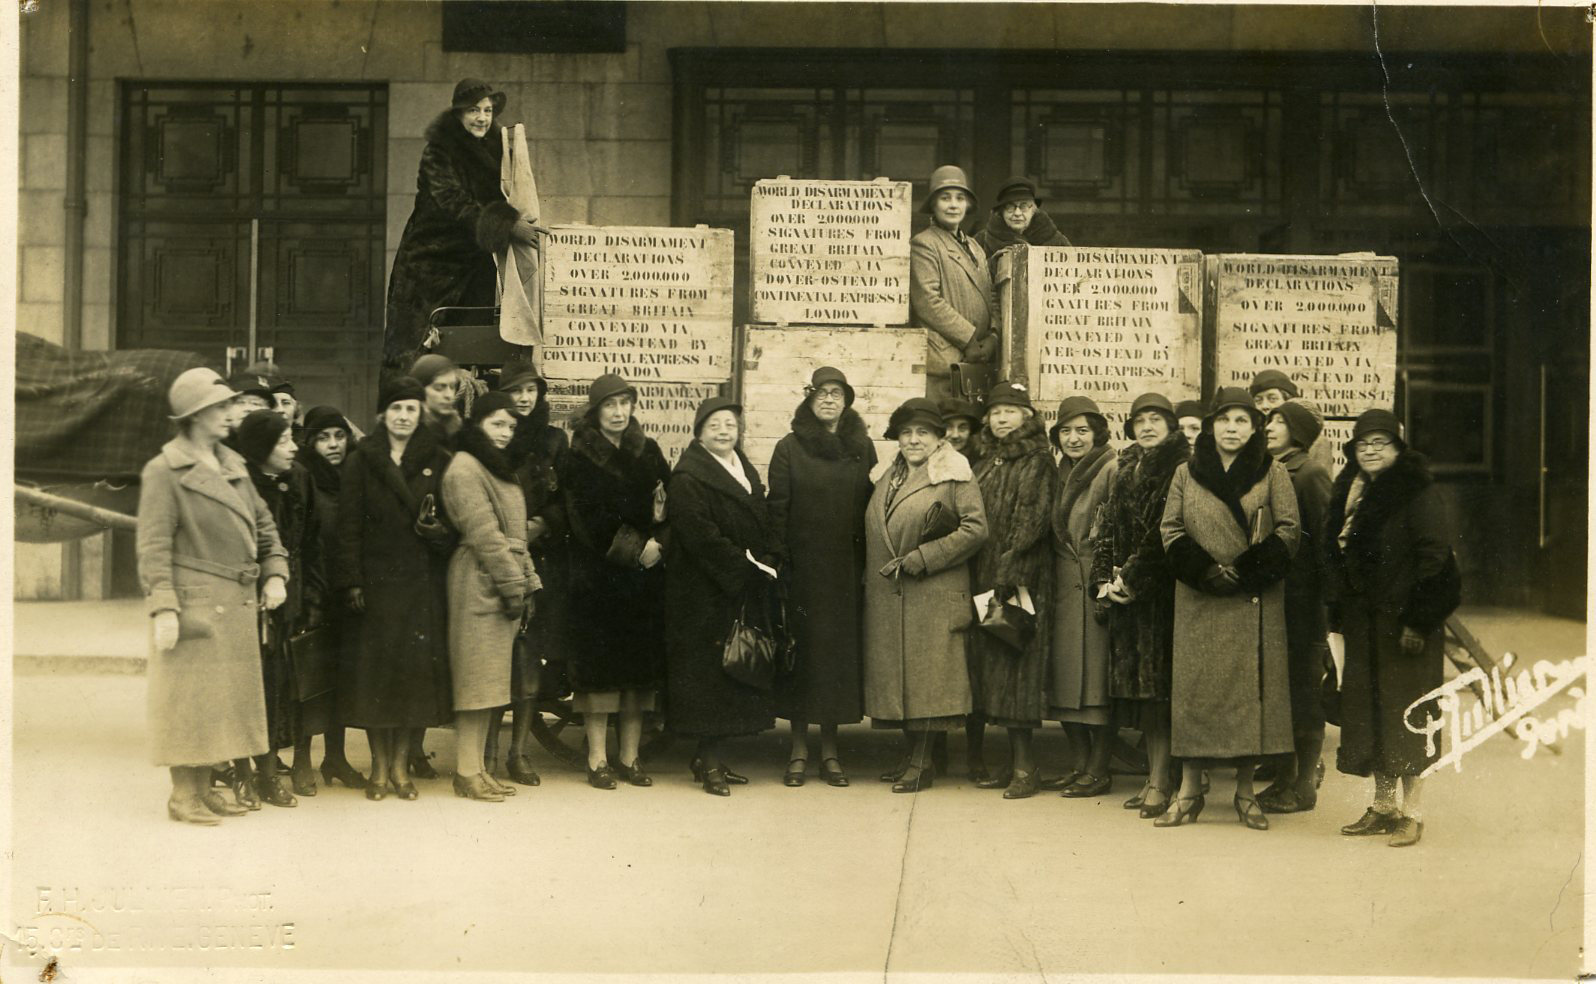 WORLD DISARMAMENT
DECLARATIONS
OVER 2.000.000
SIGNATURES FROM
GREAT BRITAIN
CONVEYED VIA
DOVER-OSTEND BY
CONTINENTAL EXPRESS L
LONDON
WORLD DISARMAMENT
DECLARATIONS
OVER 2.000.000
SIGNATURES FROM
GREAT BRITAIN
CONVEYED VIA
DOVER-OSTEND BY
CONTINENTAL EXPRESS L
LONDON
RLD DISARMAMENT
DECLARATIONS
OVER 2.000.000
GNATURES FROM
GREAT BRITAIN
CONVEYED VIA
VER-OSTEND BY
TINENTAL EXPRESS L
LONDON
WORLD DISARMAMENT
DECLARATIONS
OVER 2.000.000
SIGNATURES FROM
GREAT BRITAIN
CONVEYED VIA
DOVER-OSTEND BY
LONDON
DISARMAMENT
ARATIONS
F. H. JULLIEN. PHOT.
GENEVE
F Jullien